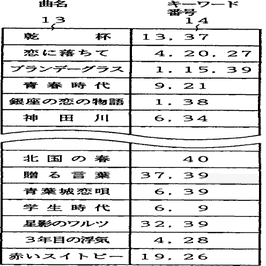 曲名 キーワード番号
13 14
乾杯 13．37
恋に落ちて 4．20．27
ブランデーグラス 1．15．39
青春時代 9．21
銀座の恋の物語 1．38
神田川 6．34
北国の春 40
贈る言葉 37．39
青葉城恋唄 6．39
学生時代 6．9
星影のワルツ 32．39
3年目の浮気 4．28
赤いスイトピー 19．26